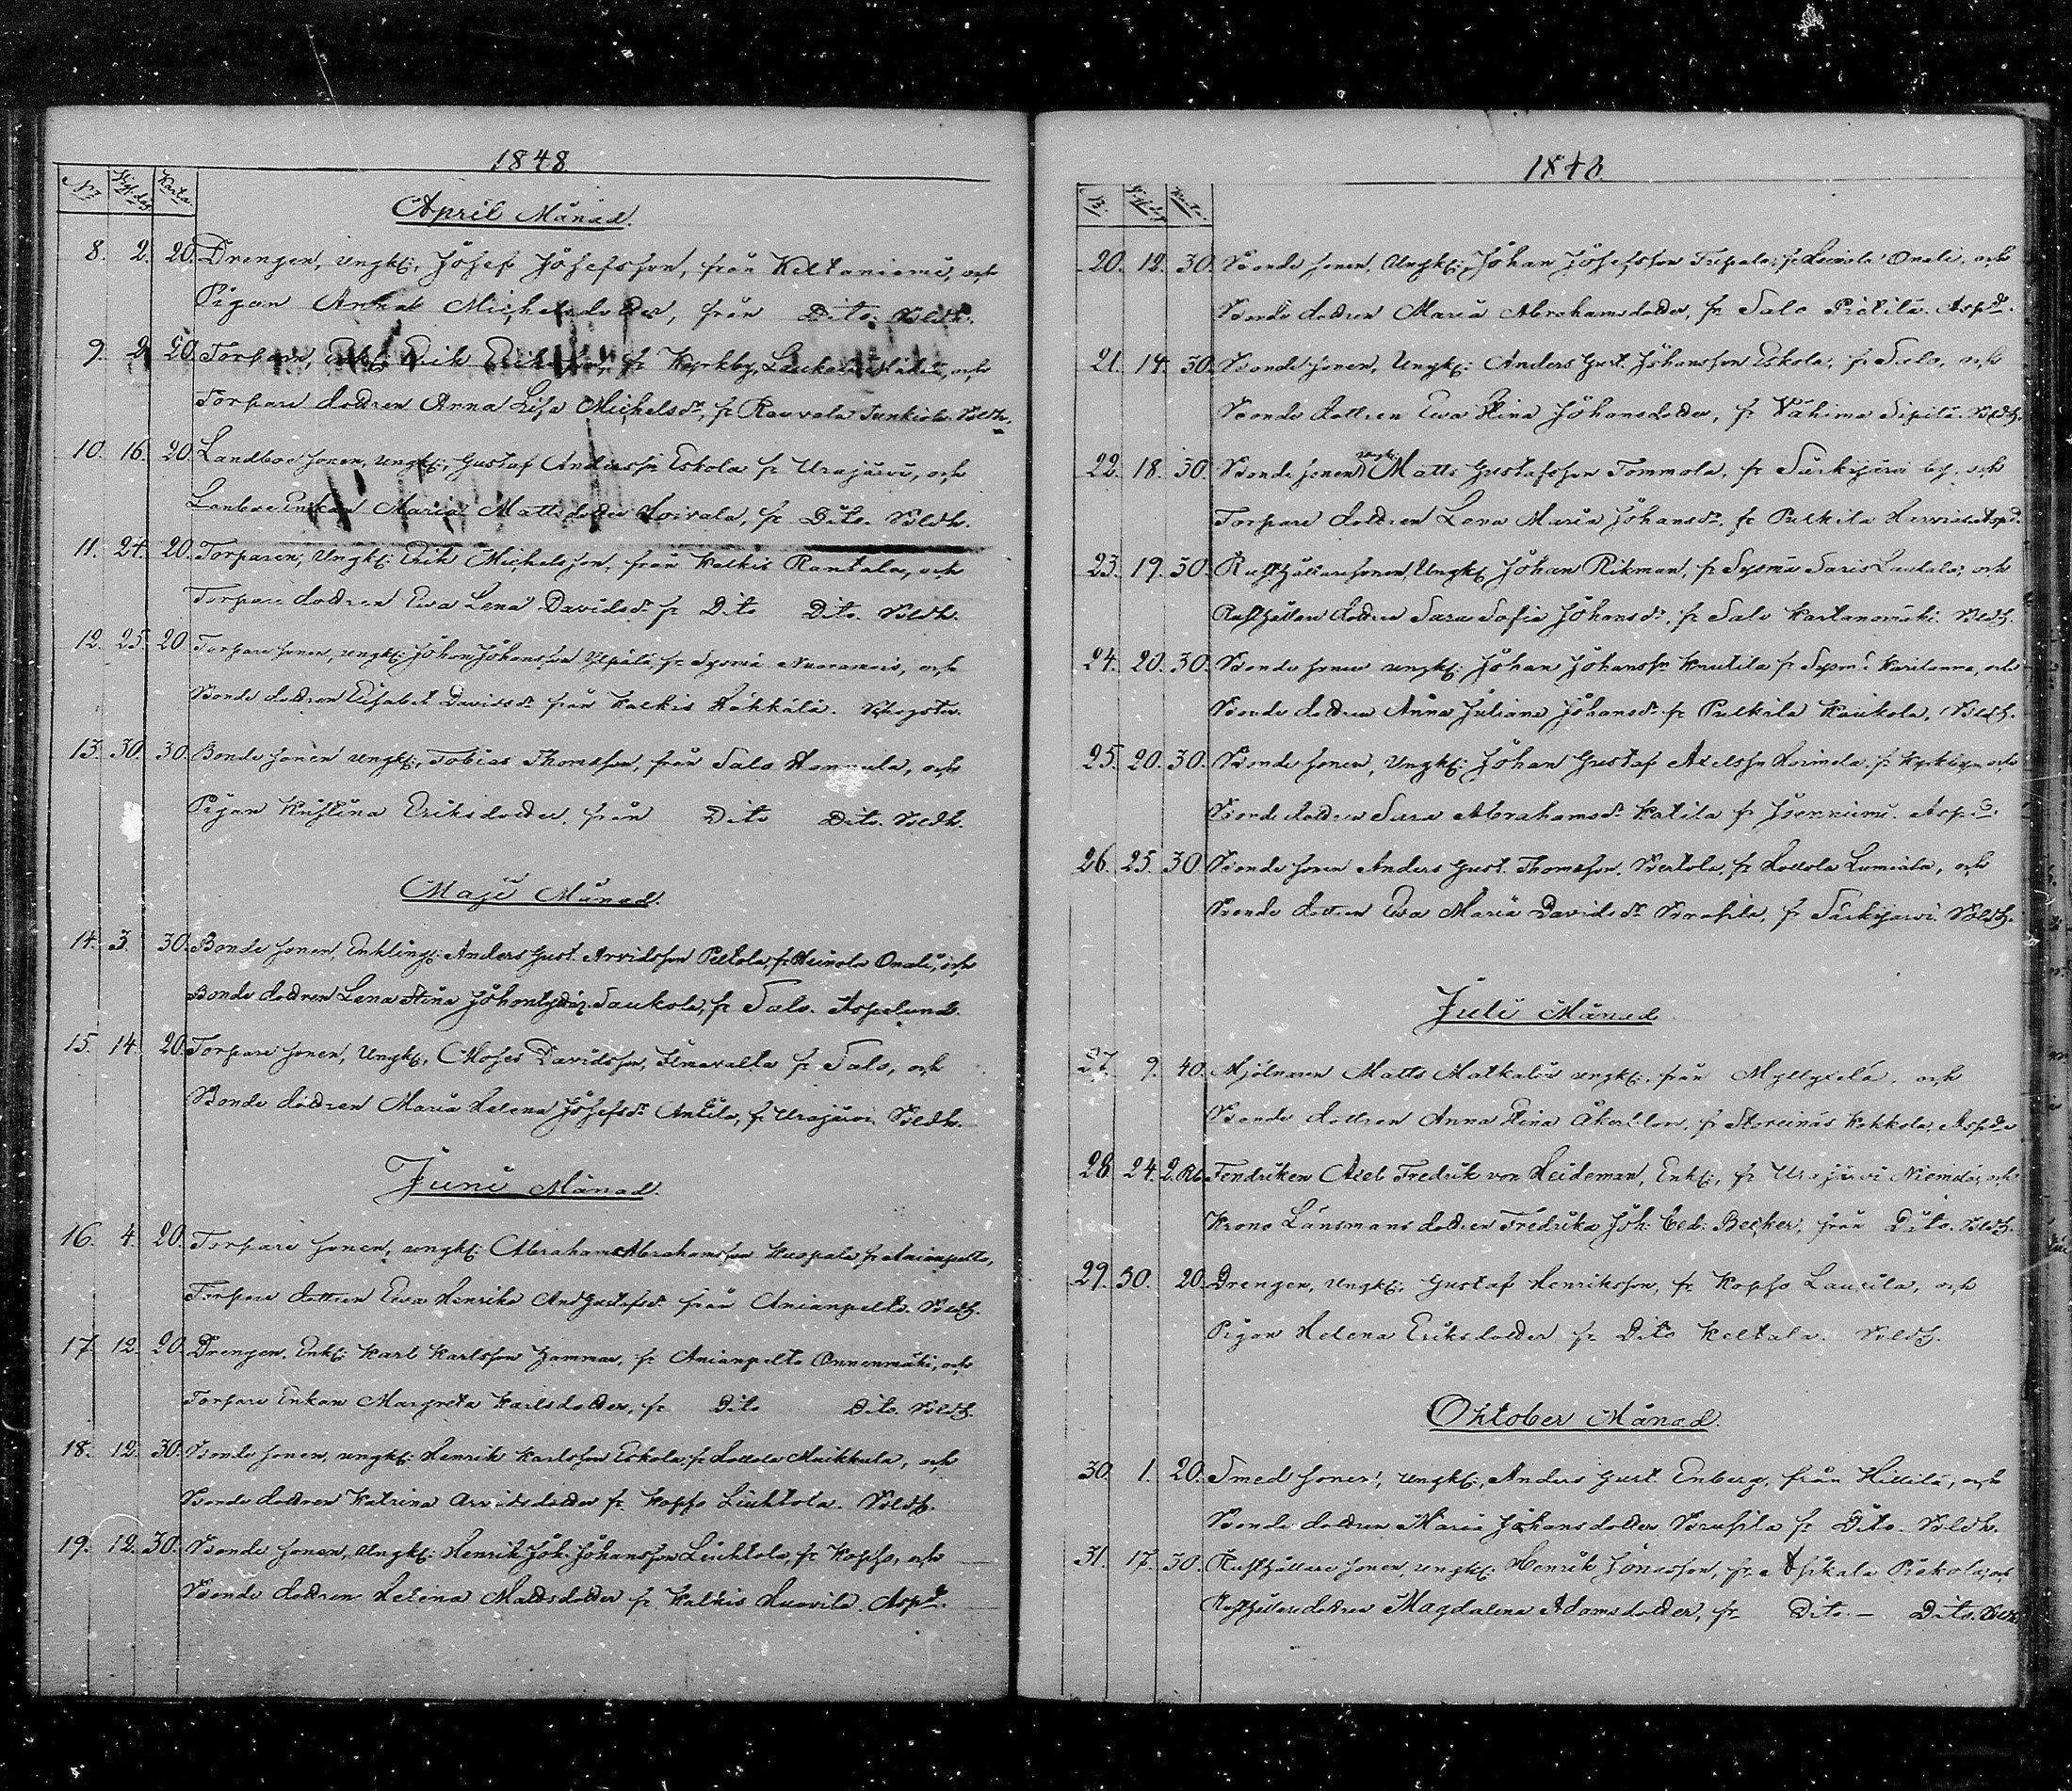 1848.
No Vig. dag Karta
April Månad.
8. 2. 20. Drengen, ungk:, Josef Josefsson, från Keltaniemi, och
Pigan Anna Michelsdotter, från Dito. Boldh.
9. 2. 20. Torparen, Enk: Erik Eriksson, fr Kyrkby, och
Torpare dottren Anna Lisa Michelsdr, fr Rauvala Junkiola. Boldh.
10. 16. 20. Landboe sonen, ungk:, Gustaf Andersson Eskola fr Urajärvi, och
Landboe Enkan Maria Mattsdotter Hoivala, fr Dito. Boldh.
11. 24. 20. Torparen, Ungk: Erik Michelsson, från Kalkis Rantala, och
Torpare dottren Eva Lena Davidsdr fr Dito Dito. Boldh.
12. 25. 20 Torpare sonen, ungk: Johan Johansson fr Sysmä Nuoramois, och
Bonde dottren Elisabet Davidsdr från Kalkis Häkkälä.
13. 30. 30. Bonde sonen ungk:, Tobias Thomasson, från Salo, och
Pigan Kristina Eriksdotter, från Dito Dito. Boldh.
Maji Månad.
14. 3. 30. Bonde sonen, Enkling: Anders Gust. Arvidsson Peltola, fr Heinola Onali, och
Bonde dottren Lena Stina Saukola, fr Salo. Aspelund.
15. 14. 20. Torpare sonen, Ungk:, Moses Davidsson, fr Salo, och
Bonde dottren Maria Helena Josefsdr Antila, fr Urajärvi. Boldh.
Juni Månad.
16. 4. 20. Torpare sonen, ungk: Abraham Abrahamsson Kuspala fr Anianpelto,
Torpare dottren Eva Henrika And Gustafsdr från Anianpelto. Boldh.
17. 12. 20. Drengen, Enk: Karl Karlsson Hammar, fr Anianpelto Onnenmäki, och
Torpare Enkan Margreta Karlsdotter, fr Dito Dito. Boldh.
18. 12. 30. Bonde sonen, ungk: Henrik Karlsson Eskola, fr Hollola Muikkula, och
Bonde dottren Katrina Arvidsdotter fr Kopso Liuhtola. Boldh.
19. 12. 30. Bonde sonen, Ungk: Henrik Joh. Johansson Liuhtola, fr Kopso, och
Bonde dottren Helena Mattsdotter fr Kalkis Huovila. Aspd.
1848.
20. 12. 30. Bonde sonen, Ungk:, Johan Josefsson fr Heinola Onali, och
Bonde dottren Maria Abrahamsdotter, fr Salo Pietilä. Aspd.
21. 14. 30. Bonde sonen, Ungk: Anders Gust. Johansson Eskola, fr Salo, och
Bonde dottren Eva Stina Johansdotter, fr Vähimaa Sipilä. Boldh.
22. 18. 30. Bonde sonen ungk: Matts Gustafsson Tommola, fr Särkijärvi by, och
Torpare dottren Lena Maria Johansdr. fr Pulkila
23. 19. 30. Rusthållare sonen, Ungk: Johan Rikman, fr Sysmä Saris Laukala, och
Rusthållare dottren Sara Sofia Johansdr, fr Salo Kartanomäki. Boldh.
24. 20. 30. Bonde sonen ungk: Johan Johansson Knutila fr Sysmä Karilanma, och
Bonde dottren Anna Juliana Johansdr fr Pulkila Kaukola, Boldh.
25. 20. 30. Bonde sonen, Ungk: Johan Gustaf Axelsson Hoimela, fr Kyrkbyn, och
Bonde dottren Sara Abrahamsdr Katila fr Isoniemi. Aspd.
26. 25. 30. Bonde sonen Anders Gust. Thomasson, Pertola, fr Hollola Lumiala, och
Bonde dottren Eva Maria Davidsdr Sorasila, fr Särkijärvi. Boldh.
Juli Månad
27. 9. 40. Mjölnaren Matts Matkalin ungk:, från Myllykelä, och
Bonde dottren Anna Stina Åkerblom, fr Storeinäs Kokkola, Aspd
28 24. 2. Rb. Fendriken Axel Fredrik von Heideman, Enk:, fr Urajärvi Niemelä, och
Krono Länsmans dottren Fredrika Joh: Ced: Becker, från Dito. Boldh.
29. 30. 20. Drengen, Ungk:, Gustaf Henriksson, fr Kopso Laurila, och
Pigan Helena Eriksdotter fr Dito Keltala. Boldh.
Oktober Månad.
30. 1. 20. Smed sonen, Ungk:, Anders Gust. Enberg, från Hillilä, och
Bonde dottren Maria Johansdotter Sorasila fr Dito. Boldh.
31. 17. 30. Rusthållare sonen, ungk: Henrik Jonasson, fr Asikala Pickola, och
Rusthållaredottren Magdalena Adamsdotter, fr Dito. — Dito. Boldh